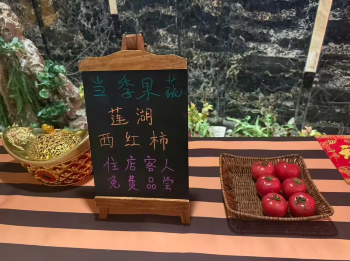 当季果蔬
莲湖
西红柿
住店客人
免费品尝